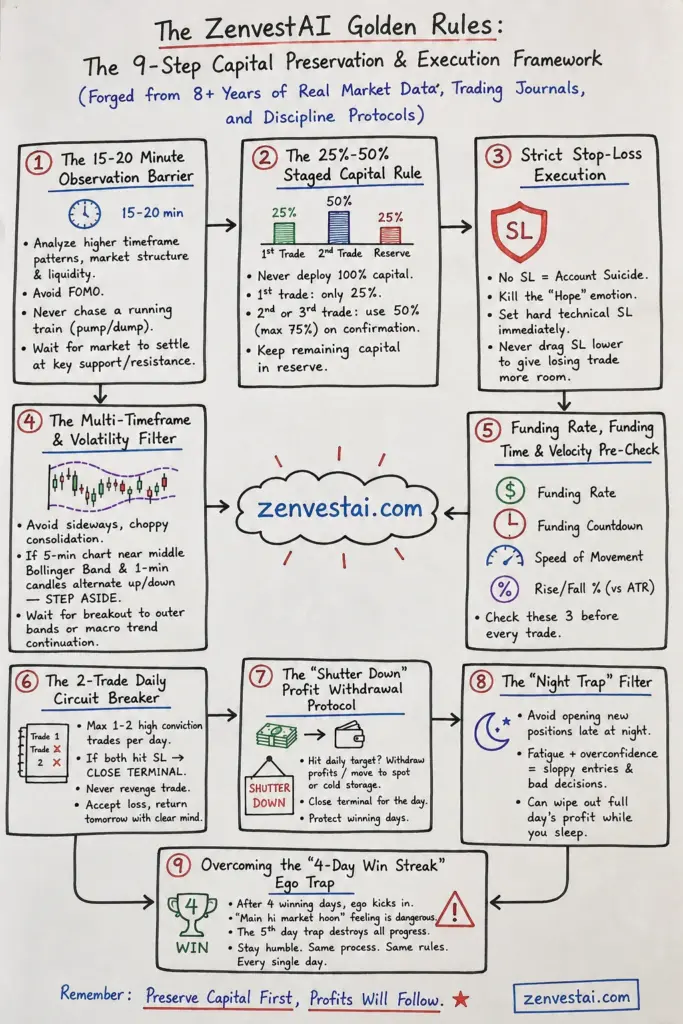 The ZenvestAI Golden Rules:
The 9-Step Capital Preservation & Execution Framework
(Forged from 8+ Years of Real Market Data", Trading Journals,
and Discipline Protocols)
① The 15-20 Minute
Observation Barrier
15-20 min
• Analyze higher timeframe
patterns, market structure
& liquidity.
• Avoid FOMO.
• Never chase a running
train (pump/dump).
• Wait for market to settle
at key support/resistance.
② The 25%-50%
Staged Capital Rule
25%
50%
25%
1st Trade
2nd Trade
Reserve
• Never deploy 100% capital.
• 1st trade: only 25%.
• 2nd or 3rd trade: use 50%
(max 75%) on confirmation.
• Keep remaining capital
in reserve.
③ Strict Stop-Loss
Execution
SL
• No SL = Account Suicide.
• Kill the "Hope" emotion.
• Set hard technical SL
immediately.
• Never drag SL lower
to give losing trade
more room.
④ The Multi-Timeframe
& Volatility Filter
• Avoid sideways, choppy
consolidation.
• If 5-min chart near middle
Bollinger Band & 1-min
candles alternate up/down
— STEP ASIDE.
• Wait for breakout to outer
bands or macro trend
continuation.
zenvestai.com
⑤ Funding Rate, Funding
Time & Velocity Pre-Check
$ Funding Rate
Funding Countdown
Speed of Movement
% Rise/Fall % (vs ATR)
• Check these 3 before
every trade.
⑥ The 2-Trade Daily
Circuit Breaker
Trade 1
Trade X
2 X
• Max 1-2 high conviction
trades per day.
• If both hit SL →
CLOSE TERMINAL.
• Never revenge trade.
• Accept loss, return
tomorrow with clear mind.
⑦ The "Shutter Down"
Profit Withdrawal
Protocol
SHUTTER
DOWN
• Hit daily target? Withdraw
profits / move to spot
or cold storage.
• Close terminal for the day.
• Protect winning days.
⑧ The "Night Trap" Filter
• Avoid opening new
positions late at night.
• Fatigue + overconfidence
= sloppy entries &
bad decisions.
• Can wipe out full
day's profit while
you sleep.
⑨ Overcoming the "4-Day Win Streak"
Ego Trap
4
WIN
• After 4 winning days, ego kicks in.
• "Main hi market hoon" feeling is dangerous.
• The 5th day trap destroys all progress.
• Stay humble. Same process. Same rules.
Every single day.
!
Remember: Preserve Capital First, Profits Will Follow. ★
zenvestai.com